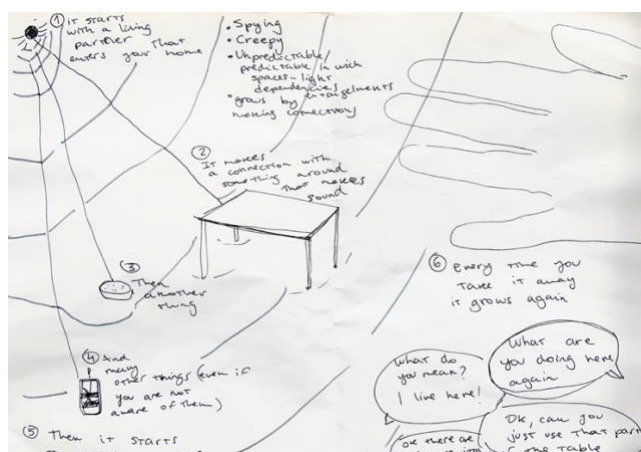 ① it starts
with a living
partner that
enters your home
• Spying
• Creepy
• Unpredictable/
predictable in wich
spaces-light
dependencies
• grows by entangelments
making connections
②
It makes
a connection with
something around
that makes
sound
③
Then
another
thing
④ And
many
other things (even if
you are not
aware of them)
⑤ Then it starts
⑥ Every time you
take it away
it grows again
What are
you doing here
again
What do
you mean?
I live here!
Ok, can you
just use that part
of the table